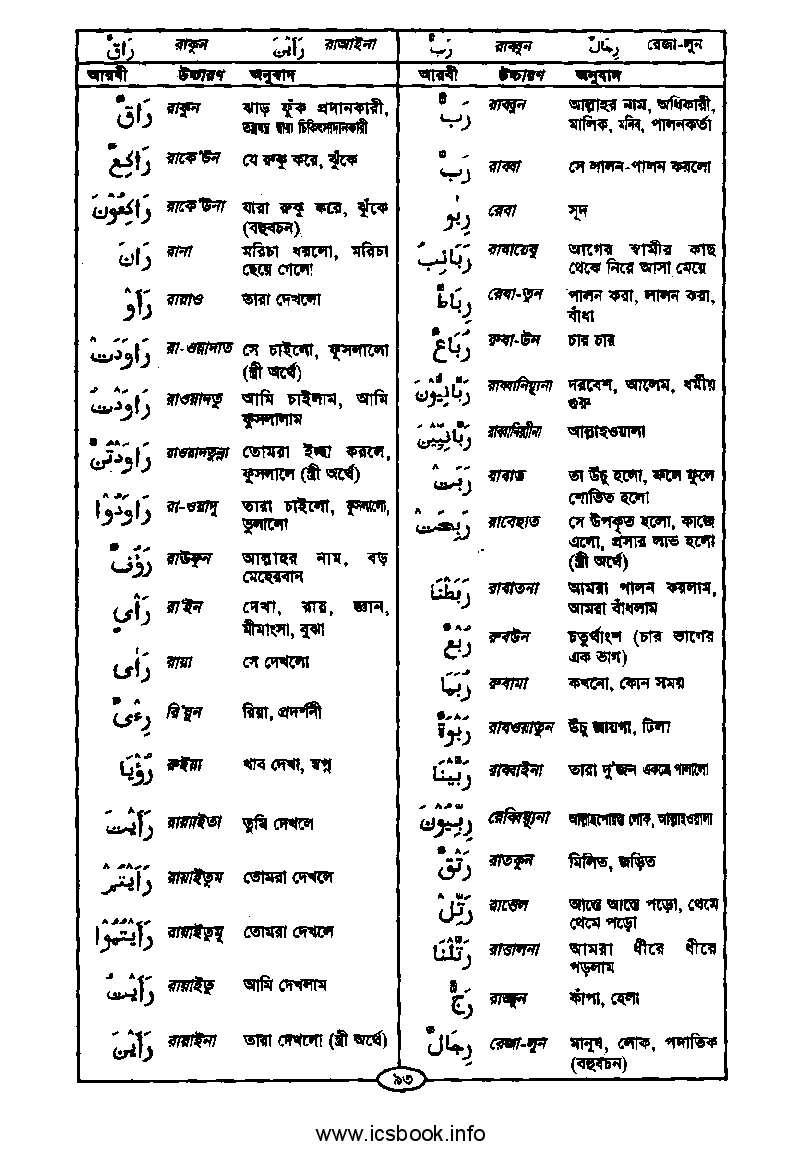 رَاقٌ রাকুন رَأَيْنَ রাআইনা
আরবী উচ্চারণ অনুবাদ
رَاقٌ রাকুন ঝাড় ফুঁক প্রদানকারী,
তন্ত্রমন্ত্র দ্বারা চিকিৎসাদানকারী
رَاكِعٌ রাকে'উন যে রুকু করে, ঝুঁকে
رَاكِعُوْنَ রাকে'উনা যারা রুকু করে, ঝুঁকে
(বহুবচন)
رَانَ রানা মরিচা ধরলো, মরিচা
ছেয়ে গেলো
رَأَوْ রায়াও তারা দেখলো
رَاوَدَتْ রা-ওয়াদাত সে চাইলো, ফুসলালো
(স্ত্রী অর্থে)
رَاوَدْتُ রাওয়াদতু আমি চাইলাম, আমি
ফুসলালাম
رَاوَدْتُنَّ রাওয়াদতুন্না তোমরা ইচ্ছা করলে,
ফুসলালে (স্ত্রী অর্থে)
رَاوَدُوْا রা-ওয়াদু তারা চাইলো, ফুসলালো,
ভুলালো
رَؤُفٌ রাউফুন আল্লাহর নাম, বড়
মেহেরবান
رَأْيِ রা'ইন দেখা, রায়, জ্ঞান,
মীমাংসা, বুঝা
رَاٰى রায়া সে দেখলো
رِءْىٌ রি'য়ুন রিয়া, প্রদর্শনী
رُؤْيَا রুইয়া খাব দেখা, স্বপ্ন
رَأَيْتَ রায়াইতা তুমি দেখলে
رَأَيْتُمْ রায়াইতুম তোমরা দেখলে
رَأَيْتُمُوْا রায়াইতুমু তোমরা দেখলে
رَأَيْتُ রায়াইতু আমি দেখলাম
رَأَيْنَ রায়াইনা তারা দেখলো (স্ত্রী অর্থে)
رَبٌّ রাব্বুন رِجَالٌ রেজা-লুন
আরবী উচ্চারণ অনুবাদ
رَبٌّ রাব্বুন আল্লাহর নাম, অধিকারী,
মালিক, মনিব, পালনকর্তা
رَبَّ রাব্বা সে লালন-পালন করলো
رِبٰو রেবা সূদ
رَبَائِبُ রাবায়েবু আগের স্বামীর কাছ
থেকে নিয়ে আসা মেয়ে
رِبَاطٌ রেবা-তুন পালন করা, লালন করা,
বাঁধা
رُبَاعٌ রুবা-উন চার চার
رَبَّانِيُّوْنَ রাব্বানিয়্যুনা দরবেশ, আলেম, ধর্মীয়
গুরু
رَبَّانِيِّيْنَ রাব্বানিয়্যীনা আল্লাহওয়ালা
رَبَتْ রাবাত তা উঁচু হলো, ফলে ফুলে
শোভিত হলো
رَبِحَتْ রাবেহাত সে উপকৃত হলো, কাজে
এলো, প্রসার লাভ হলো
(স্ত্রী অর্থে)
رَبَطْنَا রাবাতনা আমরা পালন করলাম,
আমরা বাঁধলাম
رُبُعٌ রুবউন চতুর্থাংশ (চার ভাগের
এক ভাগ)
رُبَمَا রুবামা কখনো, কোন সময়
رَبْوَةٌ রাবওয়াতুন উঁচু জায়গা, টিলা
رَبَّيْنَا রাব্বাইনা তারা দু'জন একত্রে পাললো
رِبِّيُّوْنَ রেব্বিয়্যুনা আল্লাহপোরস্ত লোক, আল্লাহওয়ালা
رَتْقٌ রাতকুন মিলিত, জড়িত
رَتِّلْ রাত্তেল আস্তে আস্তে পড়ো, থেমে
থেমে পড়ো
رَتَّلْنَا রাত্তালনা আমরা ধীরে ধীরে
পড়লাম
رَجٌّ রাজ্জুন কাঁপা, হেলা
رِجَالٌ রেজা-লুন মানুষ, লোক, পদাতিক
(বহুবচন)
৯৩
www.icsbook.info